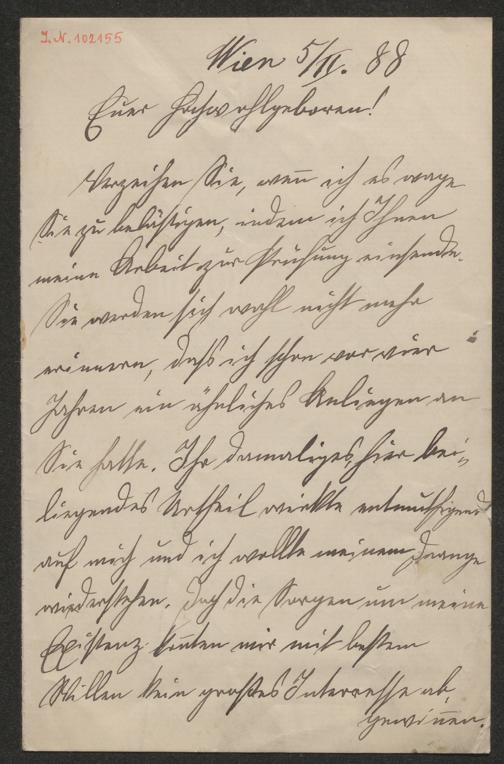 I.N. 102155
Wien 5/II. 88
Euer Hochwohlgeboren!
Verzeihen Sie, wenn ich es wage
Sie zu belästigen, indem ich Ihnen
meine Arbeit zur Prüfung einsende.
Sie werden sich wohl nicht mehr
erinnern, daß ich schon vor vier
Jahren ein ähnliches Anliegen an
Sie hatte. Ihr damaliges, hier bei-
liegendes Urtheil wirkte entmuthigend
auf mich und ich wollte meinem Drange
widerstehen. Doch die Sorgen um meine
Existenz konnten mir mit bestem
Willen kein großes Interesse ab
gewinnen.